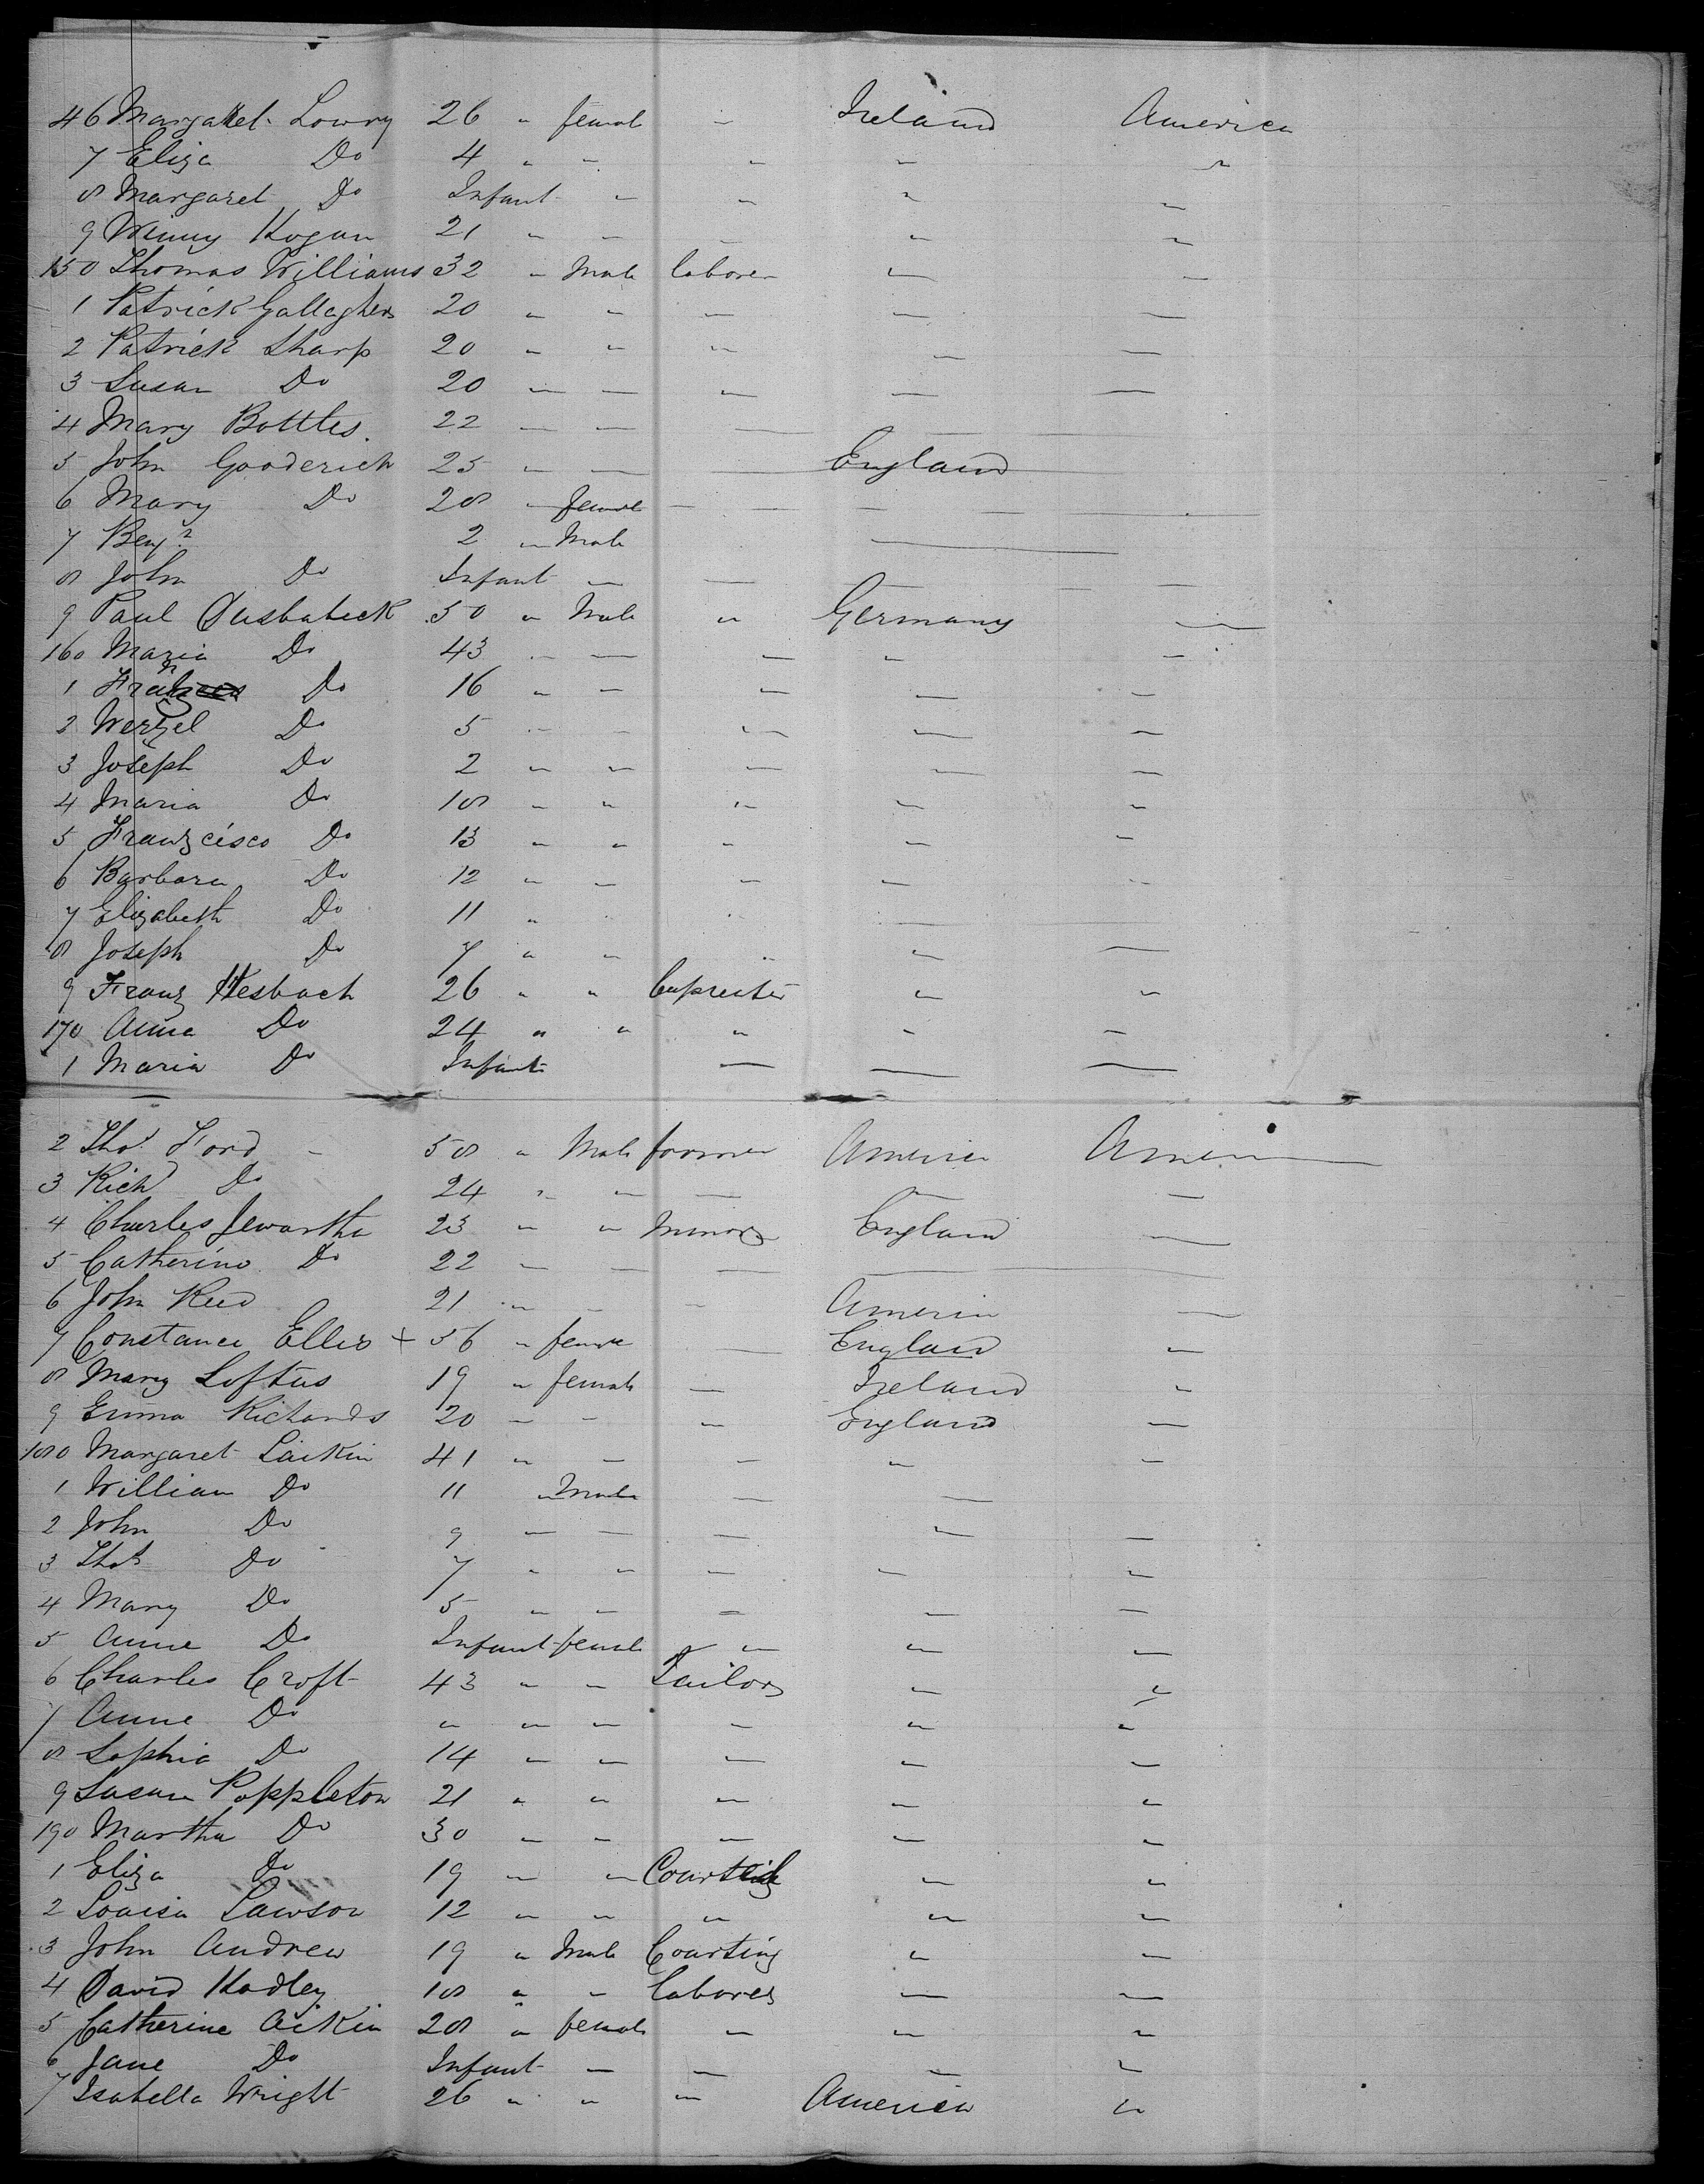 46 Margaret Lowry 26 " female " Ireland America
7 Eliza Do 4 " " " " "
8 Margaret Do Infant " " " "
9 Winny Hogan 21 " " " " "
150 Thomas Williams 32 " Male laborer " "
1 Patrick Gallagher 20 " " " " "
2 Patrick Sharp 20 " " " " "
3 Susan Do 20 " " " " "
4 Mary Bottles. 22 " " " " "
5 John Gooderich 25 " " " England
6 Mary Do 28 " female " " "
7 Benjn 2 " Male "
8 John Do Infant " " " "
9 Paul 50 " Male " Germany "
160 Maria Do 43 " " " " "
1 Franz Do 16 " " " " "
2 Wenzel Do 5 " " " " "
3 Joseph Do 2 " " " " "
4 Maria Do 18 " " " " "
5 Franzcisco Do 13 " " " " "
6 Barbara Do 12 " " " " "
7 Elizabeth Do 11 " " " "
8 Joseph Do 7 " " " " "
9 Franz Hesbach 26 " " " "
170 Anna Do 24 " " " " "
1 Maria Do Infant " " "
2 Thos Ford " 58 " Male farmer America America
3 Richd Do 24 " " " " "
4 Charles Jewartha 23 " " Minor England "
5 Catherine Do 22 " " " "
6 John Reed 21 " " " America "
7 Constance Ellis + 56 " female " England "
8 Mary Loftus 19 " female " Ireland "
9 Emma Richards 20 " " " England "
180 Margaret Laikin 41 " " " " "
1 William Do 11 " Male " "
2 John Do 9 " " " " "
3 Thos Do 7 " " " " "
4 Mary Do 5 " " " " "
5 Anne Do Infant female " " "
6 Charles Croft 43 " " Tailor " "
7 Anne Do " " " " " "
8 Sophia Do 14 " " " " "
9 Susan Poppleton 21 " " " " "
190 Martha Do 30 " " " " "
1 Eliza Do 19 " " " "
2 Louisa Lawson 12 " " " " "
3 John Andrew 19 " Male Courting " "
4 David Hadley 18 " " laborer " "
5 Catherine Aikin 28 " female " " "
6 Jane Do Infant " " " "
7 Isabella Wright 26 " " " America "